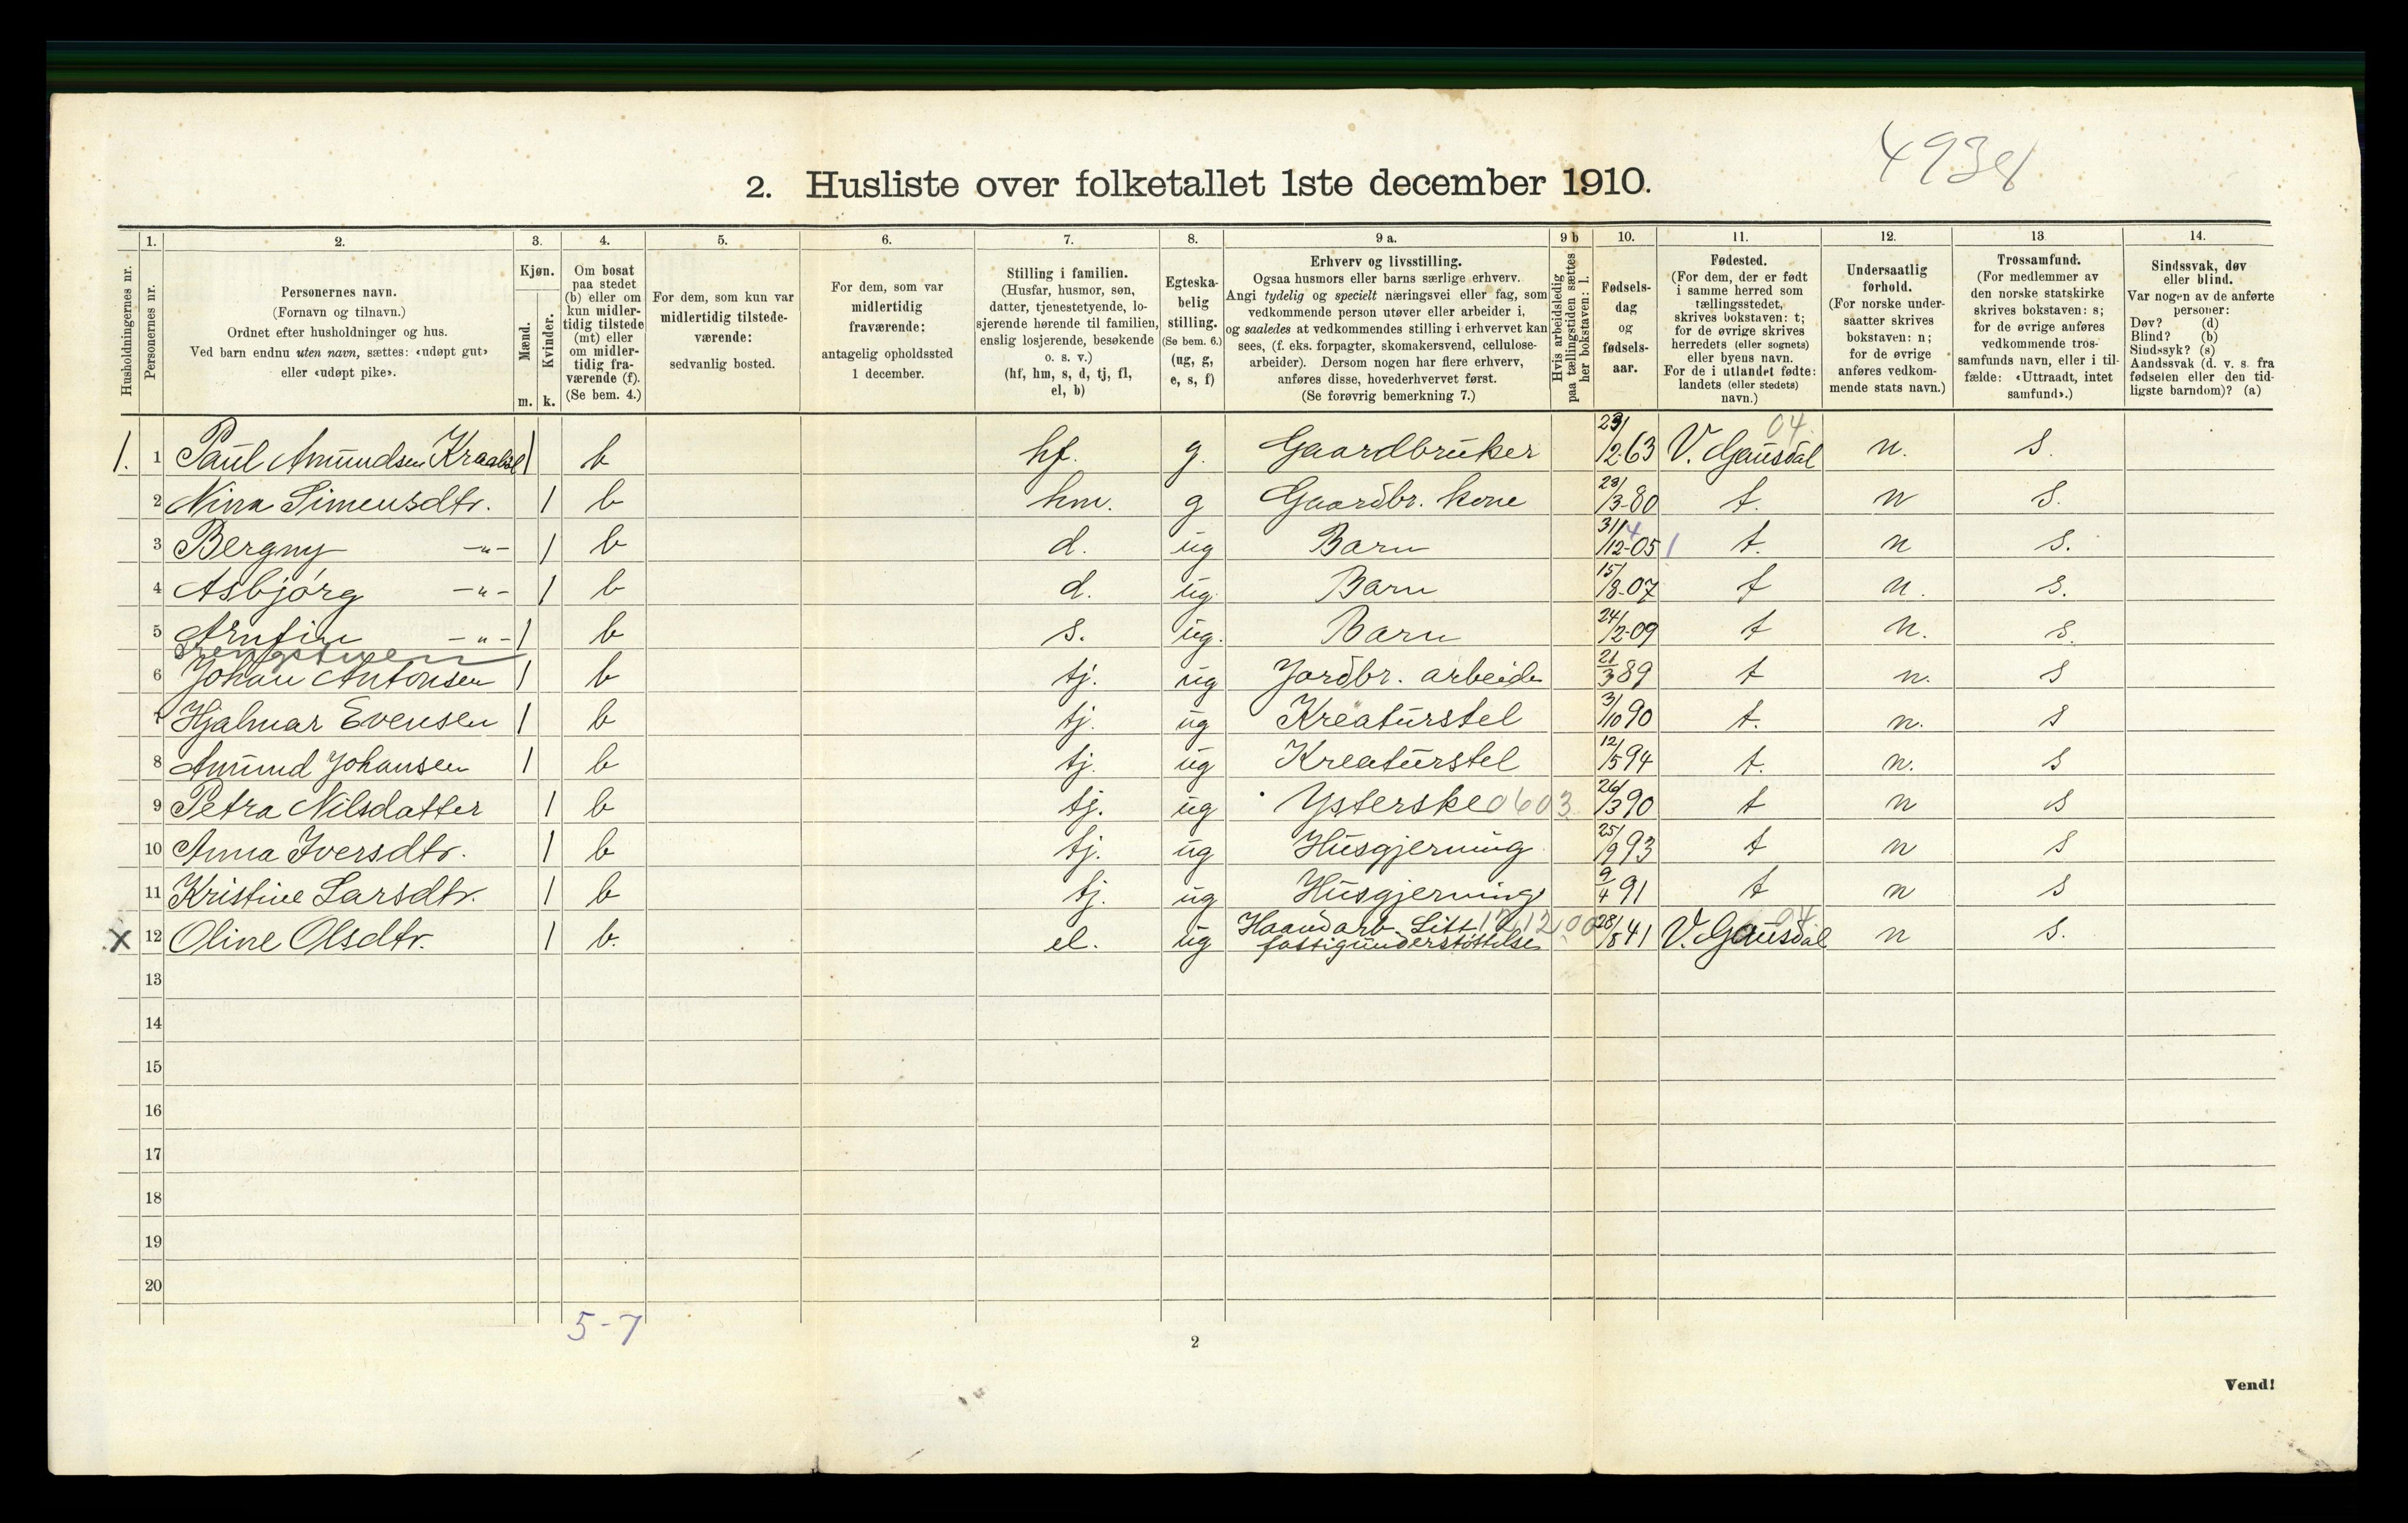 4938
2. Husliste over folketallet 1ste december 1910.
Husholdningernes nr.
1.
Personernes nr.
2.
Personernes navn.
(Fornavn og tilnavn.)
Ordnet efter husholdninger og hus.
Ved barn endnu uten navn, sættes: «udøpt gut»
eller «udøpt pike».
3.
Kjøn.
Mænd.
Kvinder.
m. k.
4.
Om bosat
paa stedet
(b) eller om
kun midler-
tidig tilstede
(mt) eller
om midler-
tidig fra-
værende (f).
(Se bem. 4.)
5.
For dem, som kun var
midlertidig tilstede-
værende:
sedvanlig bosted.
6.
For dem, som var
midlertidig
fraværende:
antagelig opholdssted
1 december.
7.
Stilling i familien.
(Husfar, husmor, søn,
datter, tjenestetyende, lo-
sjerende hørende til familien,
enslig losjerende, besøkende
o. s. v.)
(hf, hm, s, d, tj, fl,
el, b)
8.
Egteska-
belig
stilling.
(Se bem. 6.)
(ug, g,
e, s, f)
9 a.
Erhverv og livsstilling.
Ogsaa husmors eller barns særlige erhverv.
Angi tydelig og specielt næringsvei eller fag, som
vedkommende person utøver eller arbeider i,
og saaledes at vedkommendes stilling i erhvervet kan
sees, (f. eks. forpagter, skomakersvend, cellulose-
arbeider). Dersom nogen har flere erhverv,
anføres disse, hovederhvervet først.
(Se forøvrig bemerkning 7.)
9 b
Hvis arbeidsledig
paa tællingstiden sættes
her bokstaven: l.
10.
Fødsels-
dag
og
fødsels-
aar.
11.
Fødested.
(For dem, der er født
i samme herred som
tællingsstedet,
skrives bokstaven: t;
for de øvrige skrives
herredets (eller sognets)
eller byens navn.
For de i utlandet fødte:
landets (eller stedets)
navn.)
12.
Undersaatlig
forhold.
(For norske under-
saatter skrives
bokstaven: n;
for de øvrige
anføres vedkom-
mende stats navn.)
13
Trossamfund.
(For medlemmer av
den norske statskirke
skrives bokstaven: s;
for de øvrige anføres
vedkommende tros-
samfunds navn, eller i til-
fælde: «Uttraadt, intet
samfund».)
14.
Sindssvak, døv
eller blind.
Var nogen av de anførte
personer:
Døv? (d)
Blind? (b)
Sindssyk? (s)
Aandssvak (d. v. s. fra
fødselen eller den tid-
ligste barndom)? (a)
04
1. 1 Paul Amundsen Kraabøl 1 b hf. g. Gaardbruker 23/12 63 V. Gausdal n. s.
2 Nina Simensdtr. 1 b hm. g Gaardbr. kone 23/3-80 t. n s.
3 Bergny -"- 1 b d. ug Barn 31/12-05 t. n s.
4 Asbjørg -"- 1 b d. ug. Barn 15/8-07 t n. s.
5 Arnfin -"- 1 b s. ug. Barn 24/2-09 t n. s.
6 Johan Antonsen 1 b tj. ug Jordbr. arbeide 21/3 89 t n. s
7 Hjalmar Evensen 1 b tj. ug Kreaturstel 3/10 90 t. n. s
8 Amund Johansen 1 b tj. ug Kreaturstel 12/5 94 t. n. s
9 Petra Nilsdatter 1 b tj. ug Ysterske 0603 26/3 90 t n s
10 Anna Iversdtr. 1 b tj. ug Husgjerning 25/9 93 t n s
11 Kristine Larsdtr. 1 b tj. ug Husgjerning 9/4 91 t n s
x 12 Oline Olsdtr. 1 b. el. ug Haandarb. Litt 121200 28/8 41 V. Gausdal n s.
fattigunderstøttelse
13
14
15
16
17
18
19
20
5-7
2
Vend!